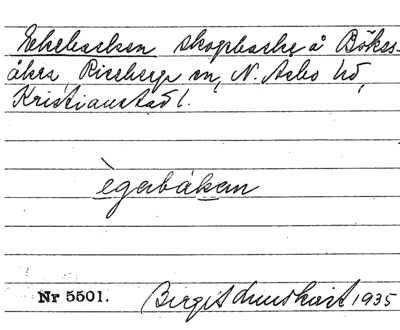 Ekebacken skogsbacke å Bökes-
åkra, Riseberga sn, N. Åsbo hd,
Kristianstad l.
ègabákan
Nr 5501. Birgit Lundkvist 1935